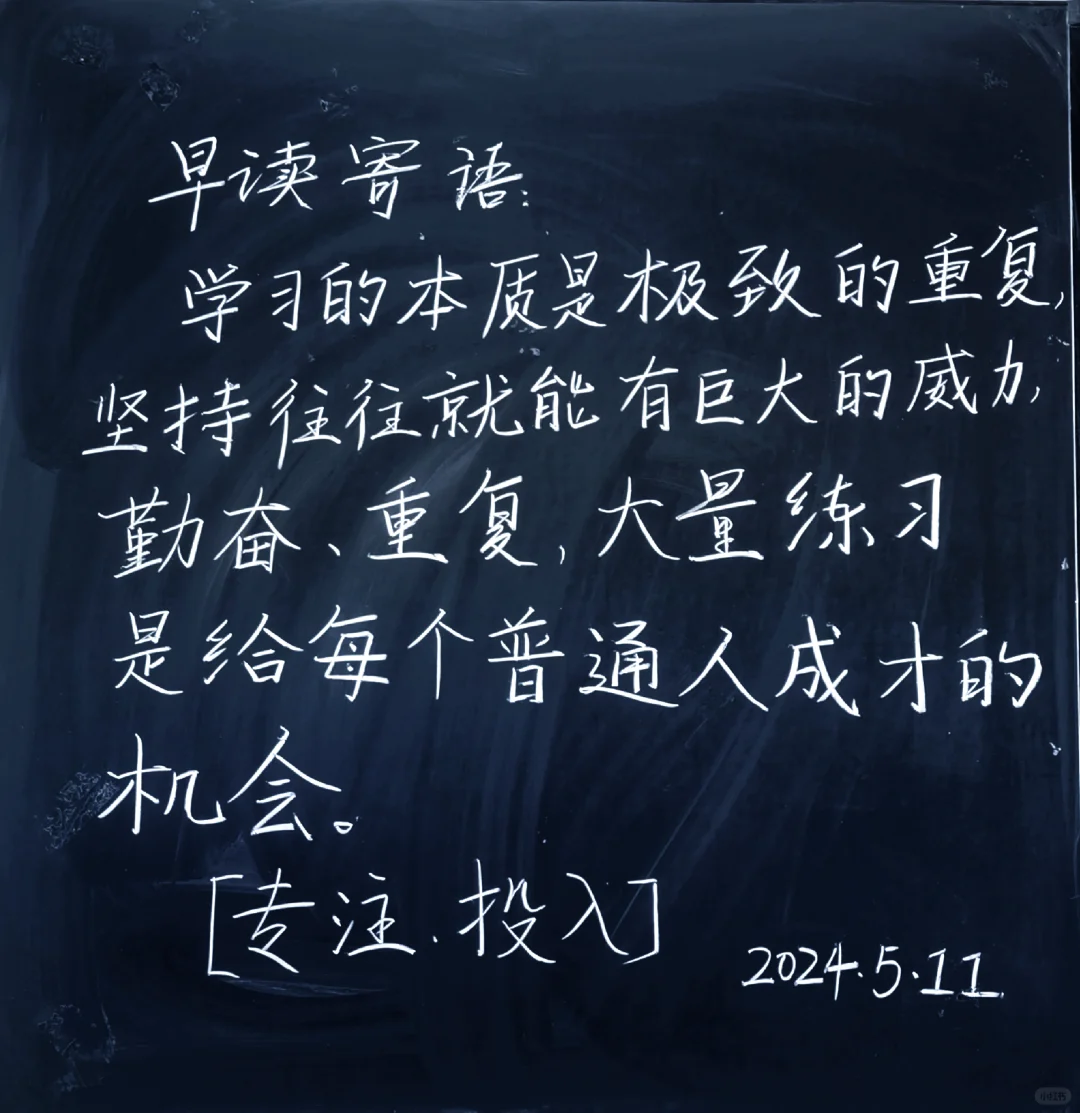 早读寄语:
学习的本质是极致的重复,
坚持往往就能有巨大的威力,
勤奋、重复,大量练习
是给每个普通人成才的
机会。
[专注.投入]
2024.5.11
小红书